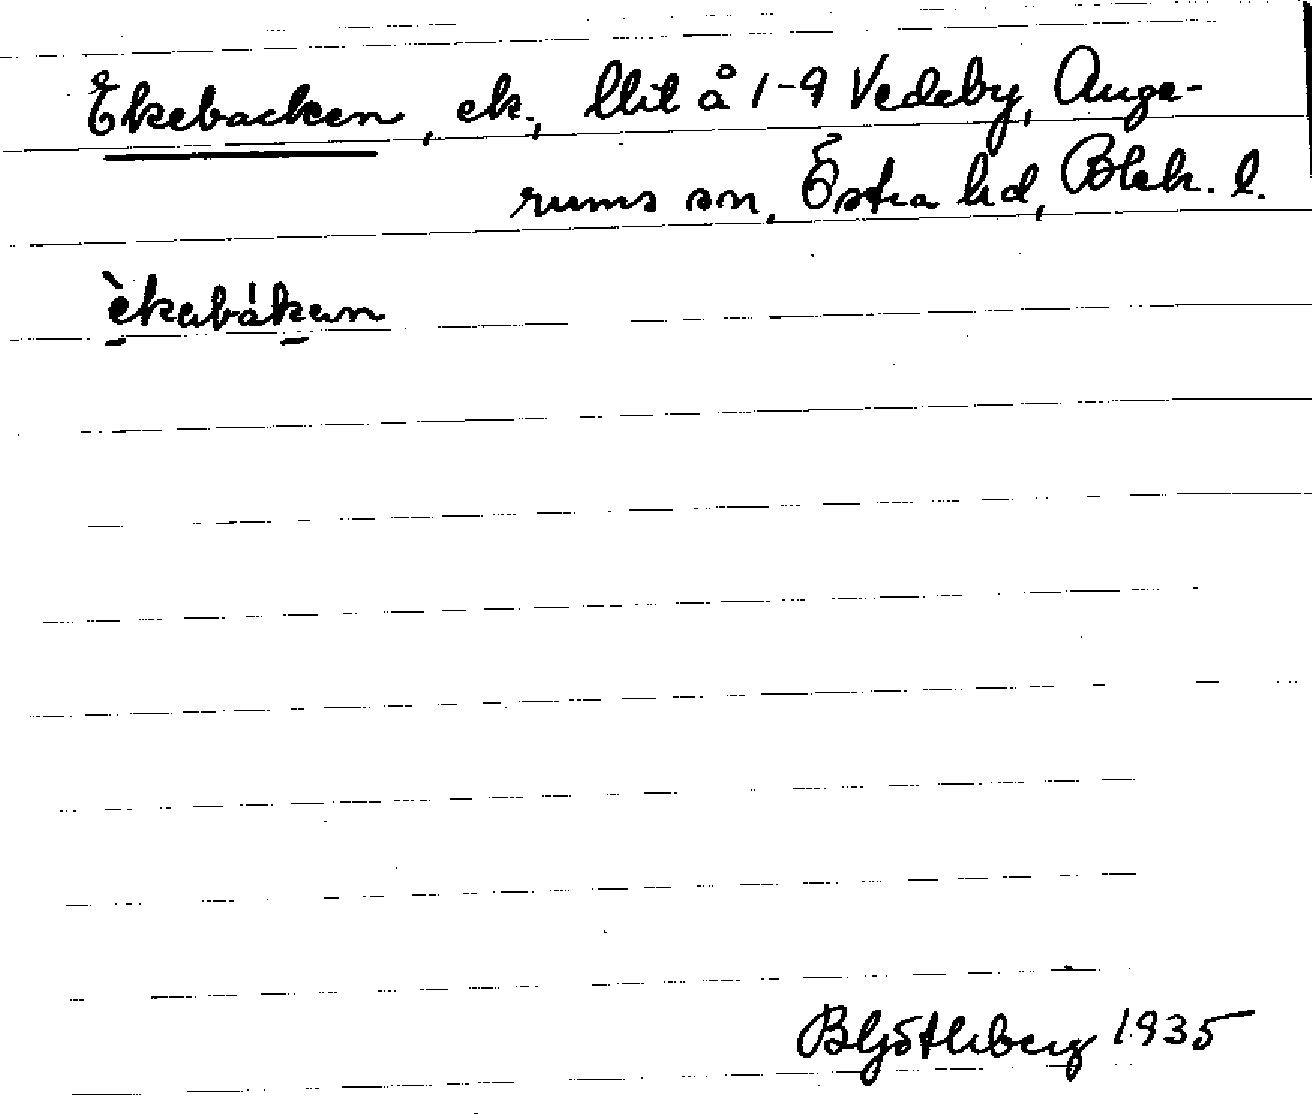 Ekebacken, ek., llit å 1-9 Vedeby, Auge-
rums sn, Östra hd, Blek. l.
èkabákan
B Göthberg 1935